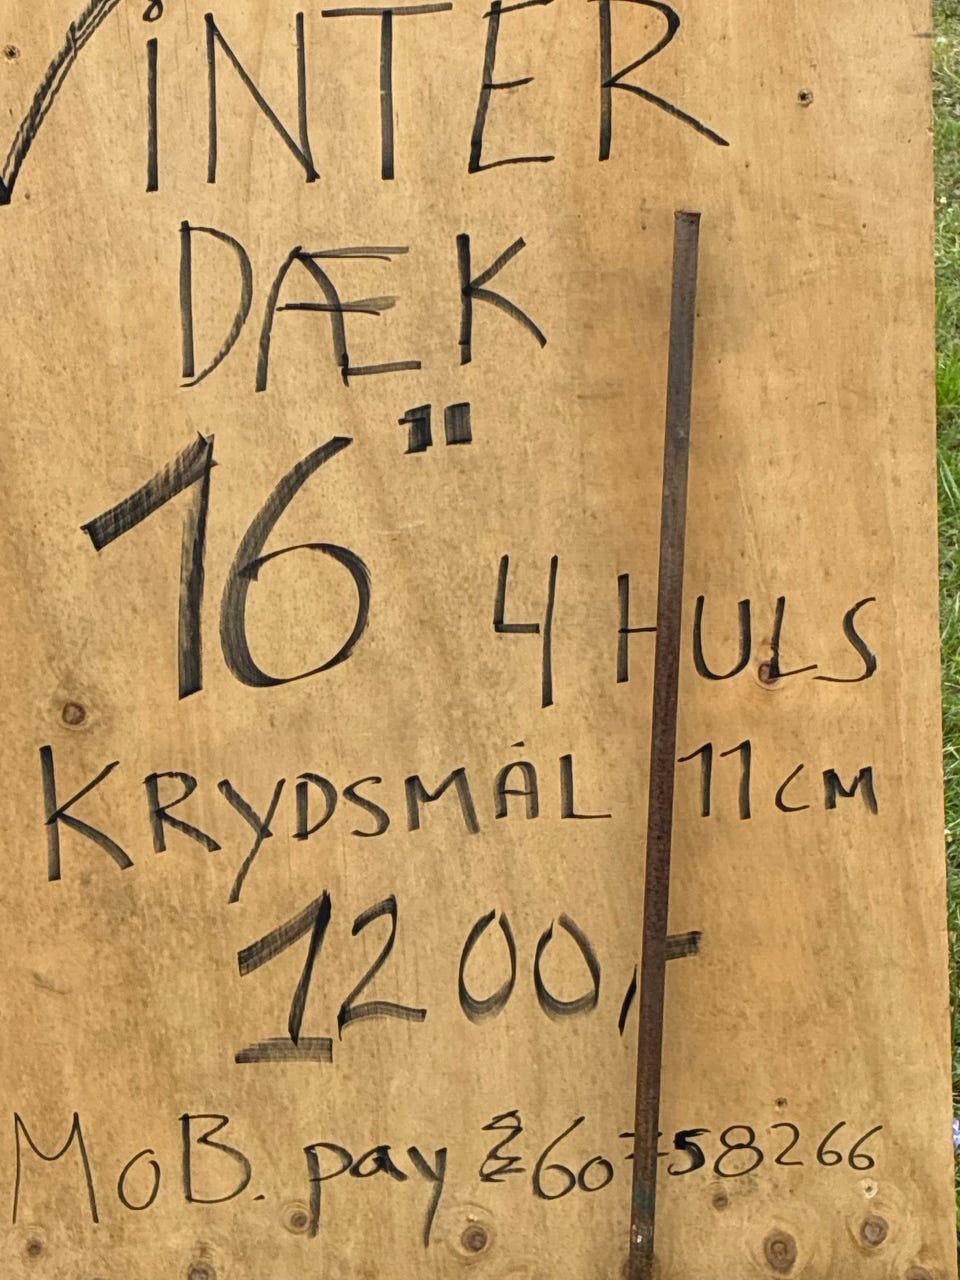 VINTER
DÆK
16" 4 HULS
KRYDSMÅL 11 CM
1200,-
MOB. pay